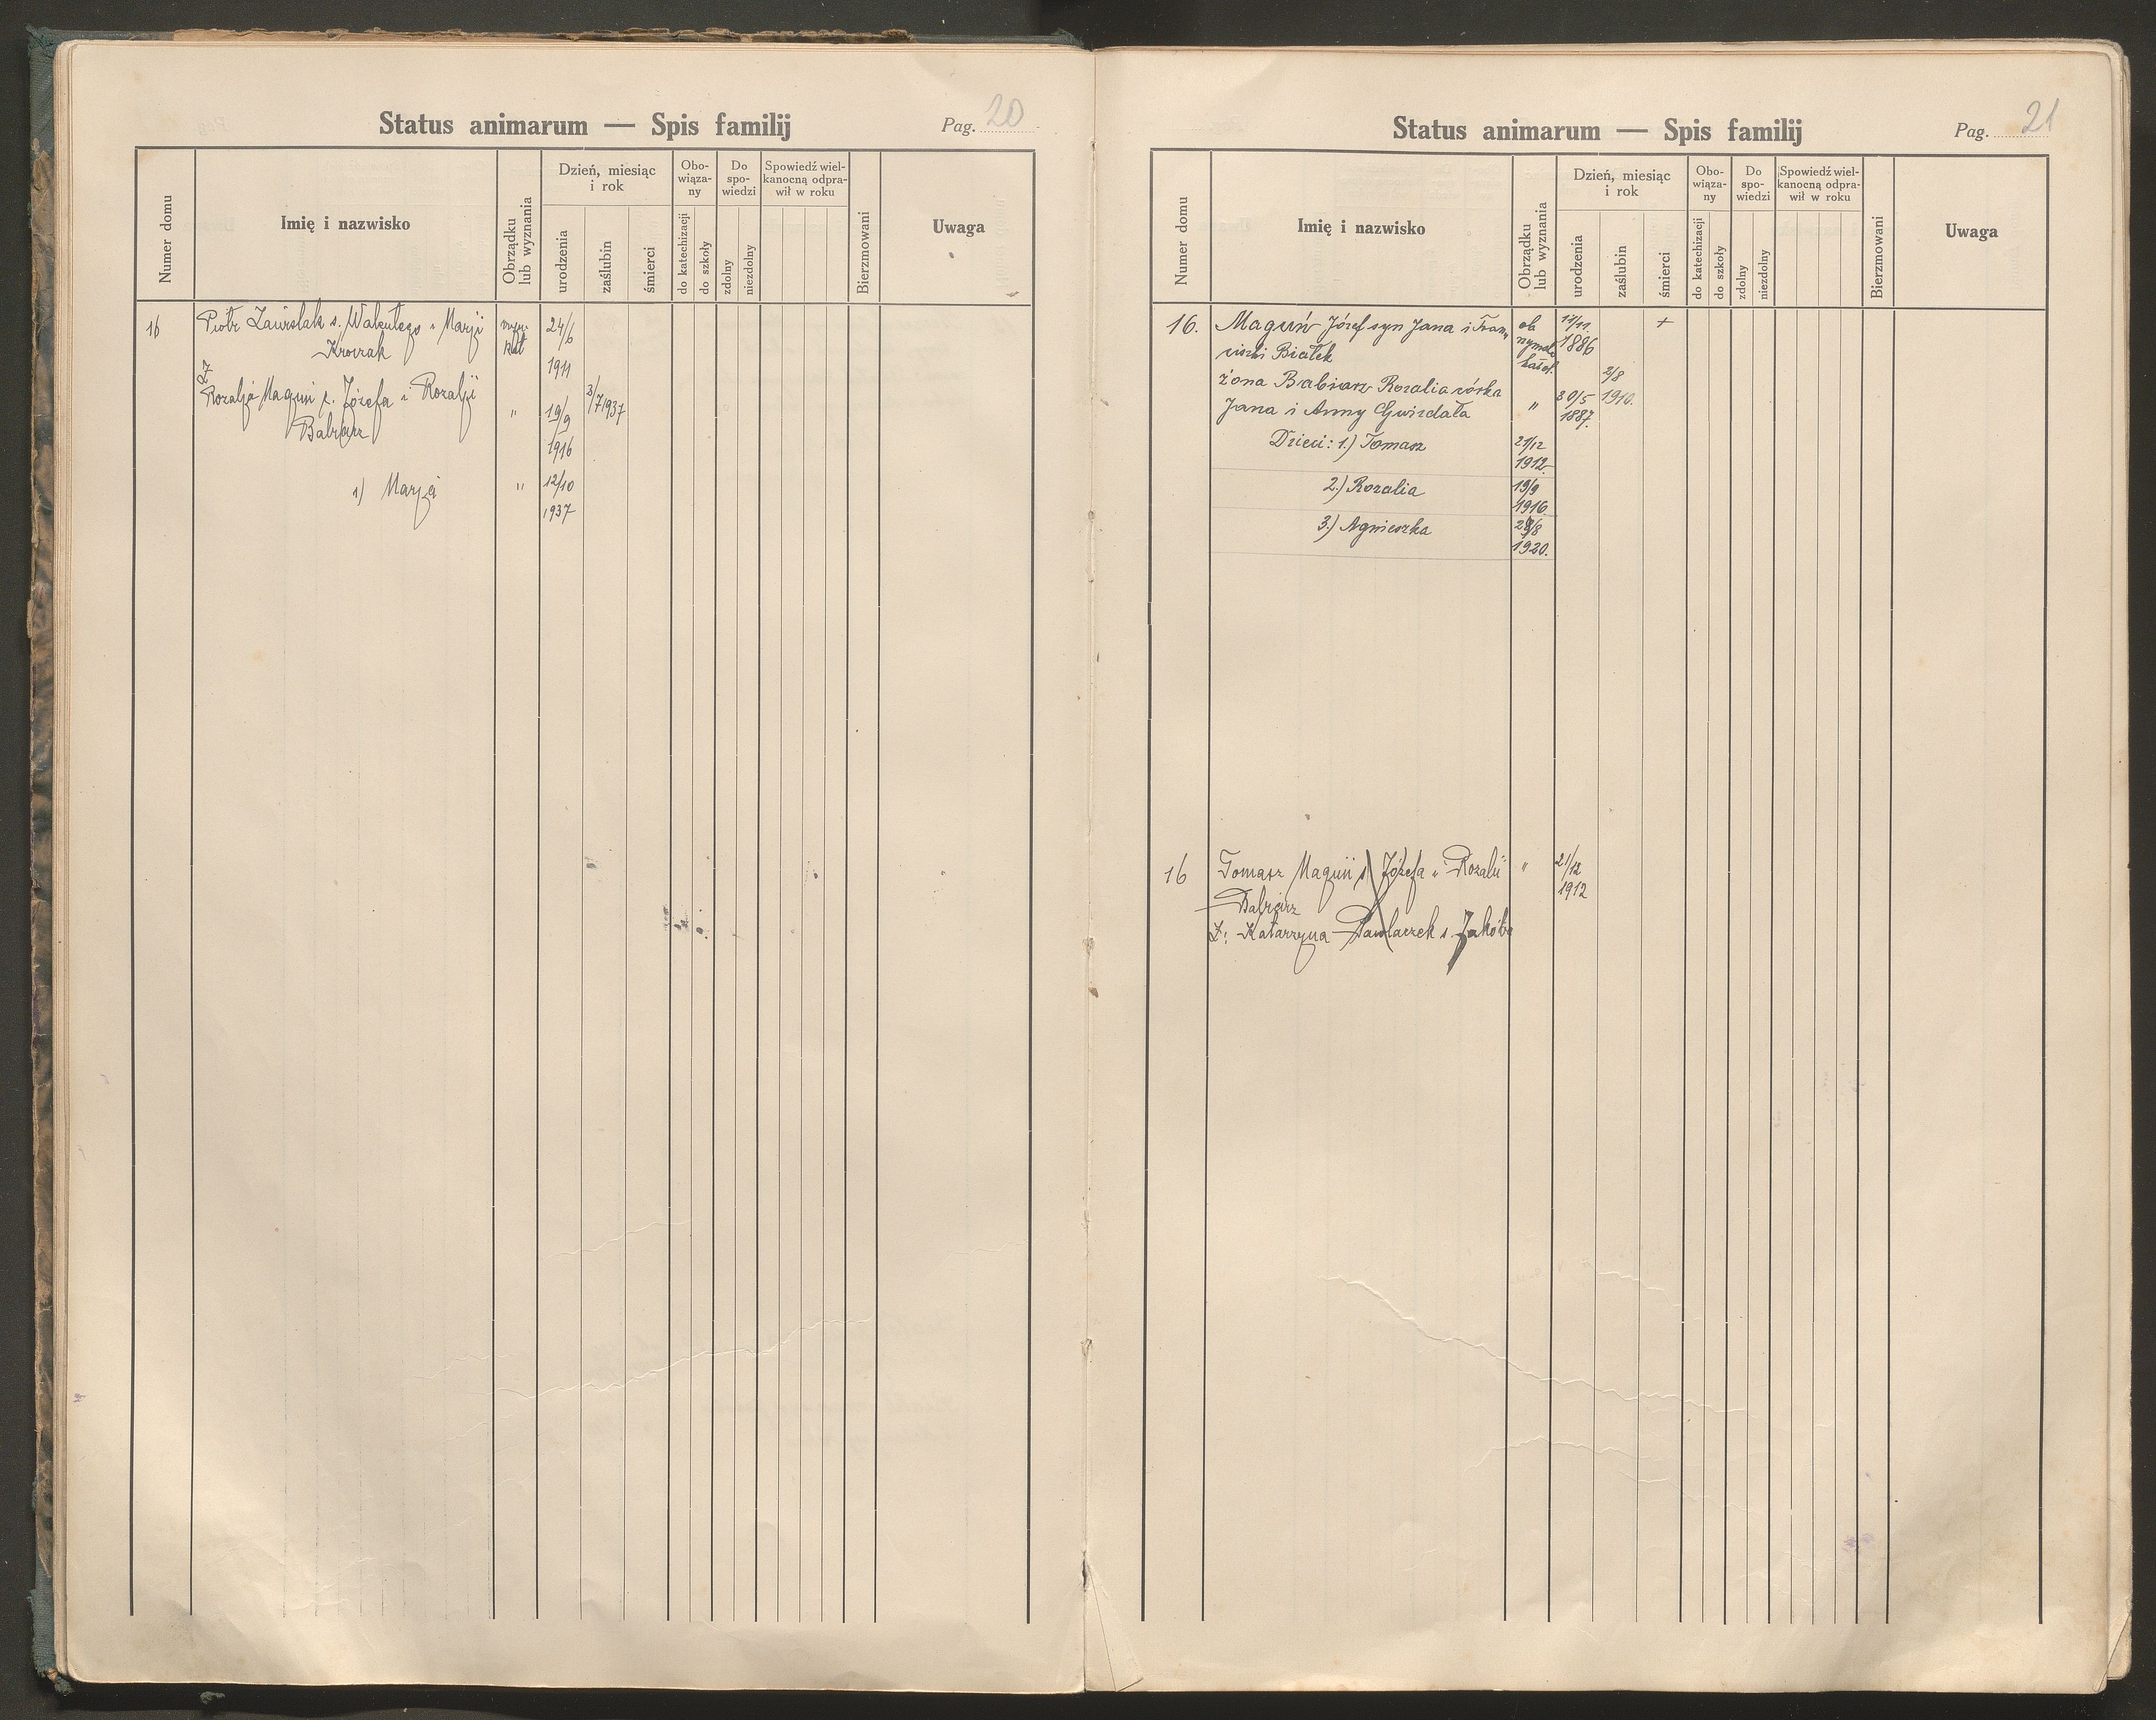 Status animarum — Spis familij
Pag. 20
Numer domu
Imię i nazwisko
Obrządku lub wyznania
Dzień, miesiąc i rok
urodzenia
zaślubin
śmierci
Obowiązany
do katechizacji
do szkoły
Do spowiedzi
zdolny
niezdolny
Spowiedź wielkanocną odprawił w roku
Bierzmowani
Uwaga
16 Piotr Zawiślak s. Walentego i Marji 24/6
Kroczak kat 1911
Ż
Rozalja Maguń c. Józefa i Rozalji " 19/9 3/7 1937
Babiarz 1916
1) Marja " 12/10
1937
Status animarum — Spis familij
Pag. 21
Numer domu
Imię i nazwisko
Obrządku lub wyznania
Dzień, miesiąc i rok
urodzenia
zaślubin
śmierci
Obowiązany
do katechizacji
do szkoły
Do spowiedzi
zdolny
niezdolny
Spowiedź wielkanocną odprawił w roku
Bierzmowani
Uwaga
16. Maguń Józef syn Jana i Fran- ob 11/11. +
ciszki Białek rzymsko 1886
żona Babiarz Rozalia córka 2/8
Jana i Anny Gwizdała " 30/5 1910.
1887.
Dzieci: 1.) Tomasz 21/12
1912
2.) Rozalia 19/9
1916.
3.) Agnieszka /8
1920.
16 Tomasz Maguń s. Józefa i Rozalii " 21/12
Babiarz 1912
Ż: Katarzyna Pawlaczek s. Jakóba